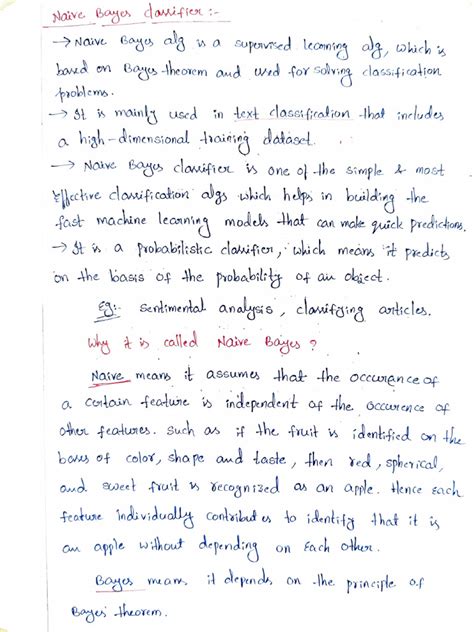 Naive Bayes classifier :-
→ Naive Bayes alg is a supervised learning alg, which is
based on Bayes theorem and used for solving classification
problems.
→ It is mainly used in text classification that includes
a high-dimensional training dataset.
→ Naive Bayes classifier is one of the simple & most
Effective classification algs which helps in building the
fast machine learning models that can make quick predictions.
→ It is a probabilistic classifier, which means it predicts
on the basis of the probability of an object.
Eg:- sentimental analysis, classifying articles.
Why it is called Naive Bayes ?
Naive means it assumes that the occurance of
a certain feature is independent of the occurence of
other features. Such as if the fruit is identified on the
bases of color, shape and taste, then red, spherical,
and sweet fruit is recognized as an apple. Hence each
feature individually contributes to identify that it is
an apple without depending on Each other.
Bayes means it depends on the principle of
Bayes' theorem.